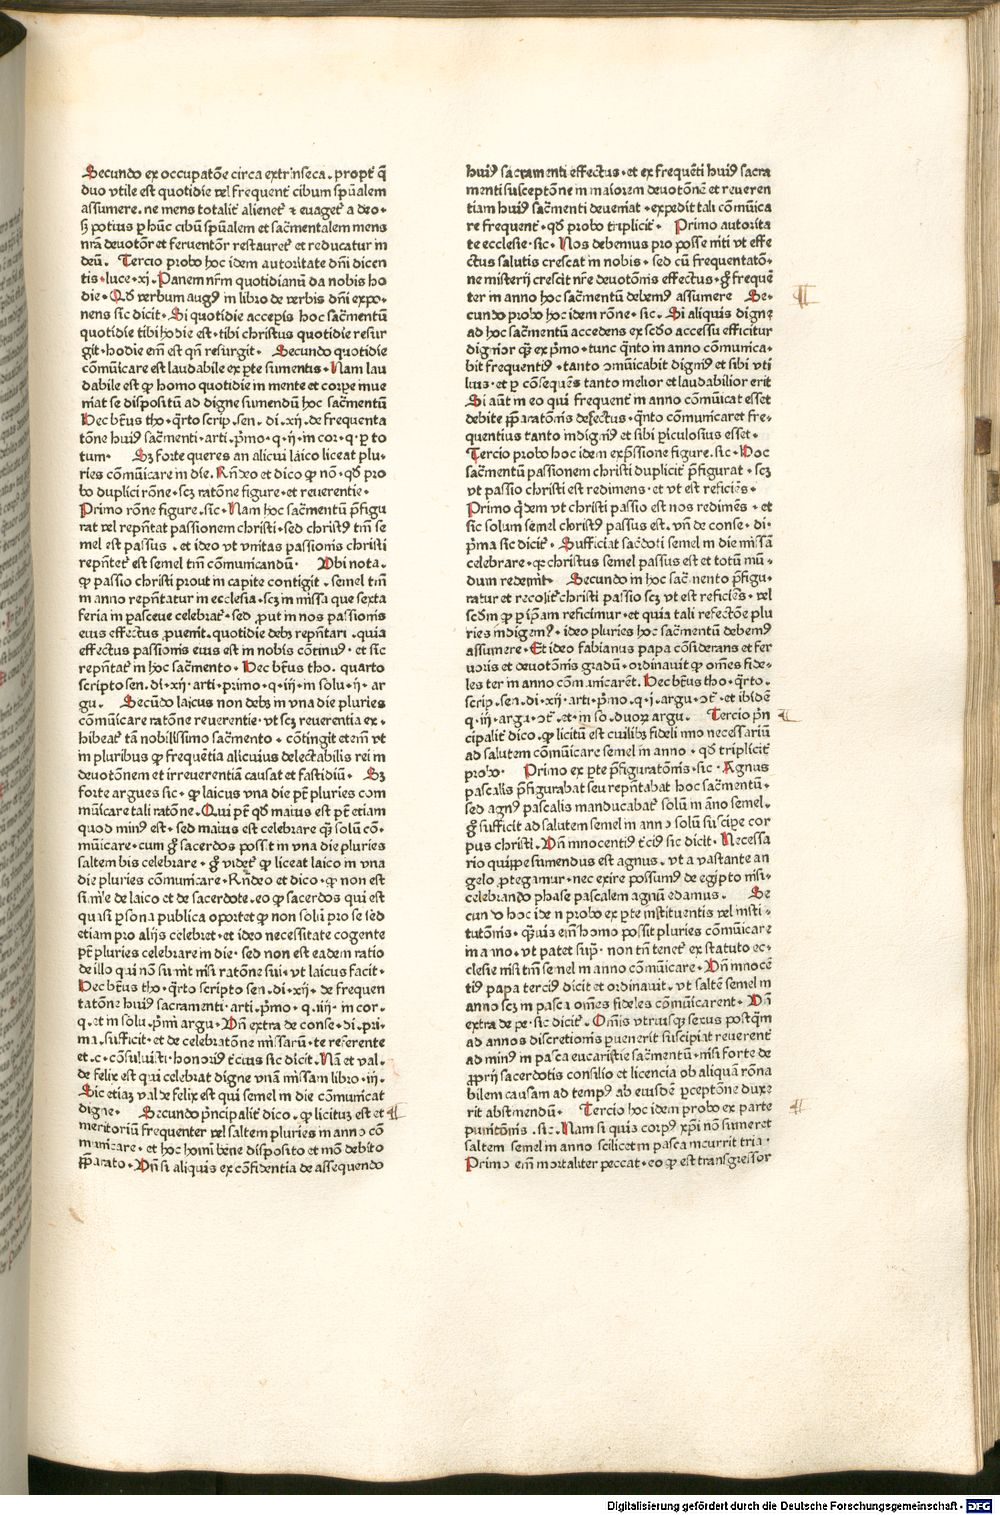 Secundo ex occupatōe circa extrinseca. propt̄ q̄
duo vtile est quotidie vel frequent̄ cibum spūalem
assumere. ne mens totalit̄ alienet̄ ⁊ euaget̄ a deo.
sꝫ potius ꝑ hūc cibū spūalem et sac̄mentalem mens
nr̄a deuotōr et feruentōr restauret̄ et reducatur in
deū. Tercio probo hoc idem autoritate dn̄i dicen
tis. luce. xj. Panem nr̄m quotidianū da nobis ho
die. Qd̄ verbum augꝰ in libro de verbis dn̄i expo-
nens sic dicit. Si quotidie accepis hoc sac̄mentū
quotidie tibi hodie est. tibi christus quotidie resur
git. hodie em̄ est qn̄ resurgit. Secundo quotidie
cōmūicare est laudabile ex ꝑte sumentis. Nam lau
dabile est ꝙ homo quotidie in mente et corpe inue
niat se dispositū ad digne sumendū hoc sac̄mentū
Hec bt̄us tho. q̄rto scrip. sen. di. xij. de frequenta
tōne huiꝰ sac̄menti. arti. pͥmo. q. ij. in cor. q. ꝑ to
tum. Sꝫ forte queres an alicui laico liceat plu-
ries cōmūicare in die. Rn̄deo et dico ꝙ nō. qd̄ pro
bo duplici rōne. scꝫ ratōne figure. et reuerentie.
Primo rōne figure. sic. Nam hoc sac̄mentū p̄figu
rat vel repn̄tat passionem christi. sed christꝰ tm̄ se
mel est passus. et ideo vt vnitas passionis christi
repn̄tet̄ est semel tm̄ comunicandū. Vbi nota.
ꝙ passio christi prout in capite contigit. semel tm̄
in anno repn̄tatur in ecclesia. scꝫ in missa que sexta
feria in pasceue celebrat̄. sed ꝓut in nos passionis
eius effectus ꝓuenit. quotidie debꝫ repn̄tari. quia
effectus passionis eius est in nobis cōtinuꝰ. et sic
repn̄tat̄ in hoc sac̄mento. Hec bt̄us tho. quarto
scripto sen. di. xij. arti. primo. q. iij. in solu. ij. ar
gu. Secūdo laicus non debꝫ in vna die pluries
cōmūicare ratōne reuerentie. vt scꝫ reuerentia ex-
hibeat̄ tā nobilissimo sac̄mento. cōtingit etem̄ vt
in pluribus ꝙ frequētia alicuius delectabilis rei in
deuotōnem et irreuerentiā causat et fastidiū. Sꝫ
forte argues sic. ꝙ laicus vna die pt̄ pluries com
mūicare tali ratōne. Qui pt̄ qd̄ maius est pt̄ etiam
quod minꝰ est. sed maius est celebrare qꝫ solū cō-
mūicare. cum gͦ sacerdos possit in vna die pluries
saltem bis celebrare. gͦ videt̄ ꝙ liceat laico in vna
die pluries cōmunicare. Rn̄deo et dico. ꝙ non est
simile de laico et de sacerdote. eo ꝙ sacerdos qui est
quasi ꝑsona publica oportet ꝙ non solū pro se sed
etiam pro alijs celebret. et ideo necessitate cogente
pt̄ pluries celebrare in die. sed non est eadem ratio
de illo qui nō sumit nisi ratōne sui. vt laicus facit.
Hec bt̄us tho. q̄rto scripto sen. di. xij. de frequen
tatōne huiꝰ sacramenti. arti. pͥmo. q. iiij. in cor.
q. et in solu. pͥmi argu. Vn̄ extra de conse. di. pri-
ma. sufficit. et de celebratōne missarū. te referente
et. c. cōsuluisti. honoriꝰ tͨcius sic dicit. Nā et val.
de felix est qui celebrat digne vnā missam libro. iij.
Sic etiaꝫ valde felix est qui semel in die cōmunicat
digne. Secundo pͥncipalit̄ dico. ꝙ licituꝫ est et
meritoriū frequenter vel saltem pluries in anno cō
municare. et hoc homī bene disposito et mō debito
p̄parato. Vn̄ si aliquis ex confidentia de assequendo
huiꝰ sacramenti effectus. et ex frequēti huiꝰ sacra
menti susceptōne in maiorem deuotōnē et reueren
tiam huiꝰ sac̄menti deueniat. expedit tali cōmūica
re frequent̄. qd̄ probo triplicit̄. Primo autorita
te ecclesie. sic. Nos debemus pro posse niti vt effe
ctus salutis crescat in nobis. sed cū frequentatō-
ne misterij crescit nr̄e deuotōnis effectus. gͦ frequē
ter in anno hoc sac̄mentū debemꝰ assumere Se-
cundo probo hoc idem rōne. sic. Si aliquis digne
ad hoc sac̄mentū accedens ex scd̄o accessu efficitur
dignior qꝫ ex pͥmo. tunc qͣnto in anno cōmunica-
bit frequentiꝰ. tanto cōmūicabit digniꝰ et sibi vti
lius. et ꝑ cōsequēs tanto melior et laudabilior erit
Si aūt in eo qui frequent̄ in anno cōmūicat esset
debite p̄paratōnis defectus. qͣnto cōmunicaret fre-
quentius tanto indigniꝰ et sibi ꝑiculosius esset.
Tercio probo hoc idem exp̄ssione figure. sic. Hoc
sac̄mentū passionem christi duplicit̄ p̄figurat. scꝫ
vt passio christi est redimens. et vt est reficiēs.
Primo qͥdem vt christi passio est nos redimēs. et
sic solum semel christꝰ passus est. vn̄ de conse. di.
pͥma sic dicit̄. Sufficiat sac̄doti semel in die missā
celebrare. qꝛ christus semel passus est et totū mū-
dum redemit. Secundo in hoc sac̄mento p̄figu-
ratur et recolit̄ christi passio scꝫ vt est reficiēs. vel
scd̄m ꝙ ꝑ ip̄am reficimur. et quia tali refectōe plu
ries indigemꝰ. ideo pluries hoc sac̄mentū debemꝰ
assumere. Et ideo fabianus papa cōsiderans et fer
uoris et deuotōnis gradū. ordinauit ꝙ om̄es fide-
les ter in anno cōmunicarent. Hec bt̄us tho. q̄rto.
scrip. sen. di. xij. arti. pͥmo. q. j. argu. ꝯt̄. et ibidē
q. iij. argu. ꝯt̄. et in so. duoꝝ argu. Tercio pͥn
cipalit̄ dico. ꝙ licitū est cuilibꝫ fideli imo necessariū
ad salutem cōmūicare semel in anno. qd̄ triplicit̄
probo. Primo ex ꝑte p̄figuratōnis. sic. Agnus
pascalis p̄figurabat seu repn̄tabat hoc sac̄mentū.
sed agnꝰ pascalis manducabat̄ solū in āno semel.
gͦ sufficit ad salutem semel in anno solū suscipe cor
pus christi. Vn̄ innocentiꝰ tͨciꝰ sic dicit. Necessa
rio quippe sumendus est agnus. vt a vastante an
gelo ꝓtegamur. nec exire possumꝰ de egipto nisi.
celebrando phase pascalem agnū edamus. Se
cundo hoc idem probo ex ꝑte instituentis vel insti-
tutōnis. qͣuis em̄ homo possit pluries cōmūicare
in anno. vt patet supͣ. non tn̄ tenet̄ ex statuto ec-
clesie nisi tm̄ semel in anno cōmūicare. Vn̄ innocē
tiꝰ papa terciꝰ dicit et ordinauit. vt saltē semel in
anno scꝫ in pasca om̄es fideles cōmūicarent. Vn̄
extra de pe. sic dicit̄. Om̄is vtriusqꝫ sexus postqͣm
ad annos discretionis ꝑuenerit suscipiat reuerent̄
ad minꝰ in pasca eucaristie sac̄mentū. nisi forte de
ꝓprij sacerdotis consilio et licencia ob aliquā rōna
bilem causam ad tempꝰ ab eiusdē ꝑceptōne duxe
rit abstinendū. Tercio hoc idem probo ex parte
punitōnis. sic. Nam si quis corpꝰ xp̄i nō sumeret
saltem semel in anno scilicet in pasca incurrit tria.
Primo em̄ mortaliter peccat. eo ꝙ est transgressor
Digitalisierung gefördert durch die Deutsche Forschungsgemeinschaft - DFG